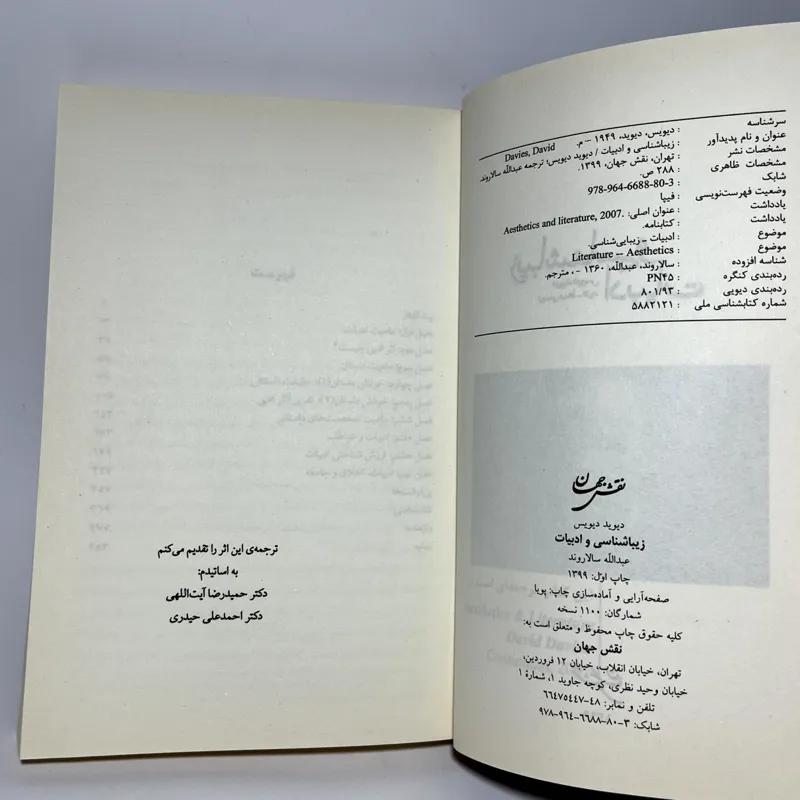 سرشناسه : دیویس، دیوید، ۱۹۴۹ - م. Davies, David
عنوان و نام پدیدآور : زیباشناسی و ادبیات / دیوید دیویس؛ ترجمه عبداللّه سالاروند.
مشخصات نشر : تهران، نقش جهان، ۱۳۹۹.
مشخصات ظاهری : ۲۸۸ ص.
شابک : 978-964-6688-80-3
وضعیت فهرست‌نویسی : فیپا
یادداشت : عنوان اصلی: Aesthetics and literature, 2007.
یادداشت : کتابنامه.
موضوع : ادبیات ـ زیبایی‌شناسی.
موضوع : Literature -- Aesthetics
شناسه افزوده : سالاروند، عبداللّه، ۱۳۶۰ - ، مترجم.
رده‌بندی کنگره : PN۴۵
رده‌بندی دیویی : ۸۰۱/۹۳
شماره کتابشناسی ملی : ۵۸۸۲۱۲۱
نقش جهان
دیوید دیویس
زیباشناسی و ادبیات
عبداللّه سالاروند
چاپ اوّل: ۱۳۹۹
صفحه‌آرایی و آماده‌سازی چاپ: پویا
شمارگان: ۱۱۰۰ نسخه
کلیه حقوق چاپ محفوظ و متعلق است به:
نقش جهان
تهران، خیابان انقلاب، خیابان ۱۲ فروردین،
خیابان وحید نظری، کوچه جاوید ۱، شمارهٔ ۱
تلفن و نمابر: ۴۸-۶۶۴۷۵۴۴۷
شابک: ۳-۸۰-۶۶۸۸-۹۶۴-۹۷۸
ترجمه‌ی این اثر را تقدیم می‌کنم
به اساتیدم:
دکتر حمیدرضا آیت‌اللهی
دکتر احمدعلی حیدری